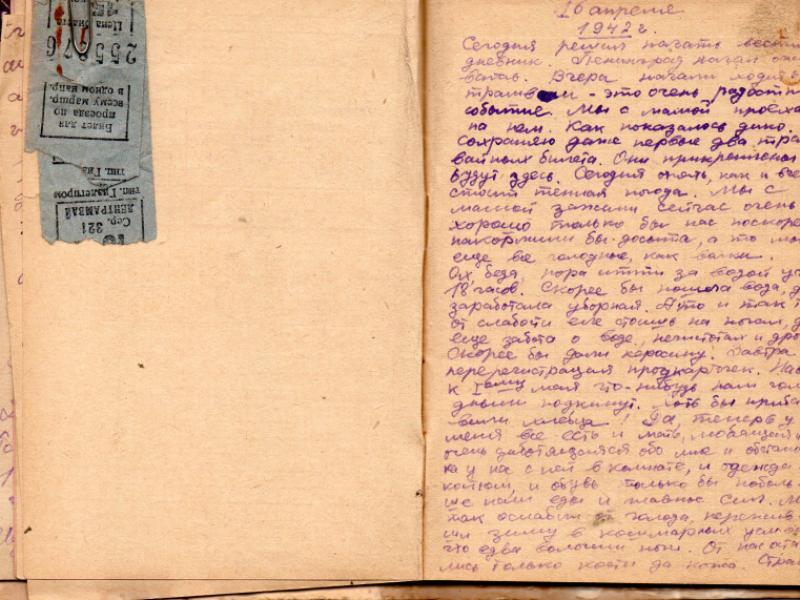 Цена билета
255876
Билет для
проезда по
всему маршр.
в одном напр.
тип. Гиз
тип. Гизлегпром
ЛЕНТРАМВАЙ
Сер. 321
16 апреля
1942 г.
Сегодня решил начать вести
дневник. Ленинград начал ожи
вать. Вчера начали ходить
трамваи - это очень радостн
событие. Мы с мамой проеха
на нем. Как показалось дико.
Сохраняю даже первые два трам
вайных билета. Они прикрепленные
будут здесь. Сегодня опять, как и вче
стоит теплая погода. Мы с
мамой зажили сейчас очень
хорошо только бы нас поскорей
накормили бы досыта, а то мы
еще все голодные, как волки.
Ох, беда, пора итти за водой уже
18 часов. Скорее бы пошла вода, д
заработала уборная. А то и так
от слабости еле стоишь на ногах, д
еще забота о воде, кипятком и дро
Скорее бы дали керосину. Завтра
перерегистрация продкарточек. На
к 1ому мая что-нибудь нам голо
дным подкинут. Хоть бы приба
вили хлебца! Да, теперь у
меня все есть и мать, любящая и
очень заботящаяся обо мне и обстанов
ка у нас с ней в комнате, и одежда
костюм, и обувь только бы поболь
ше нам еды и главное сил. М
так ослабли от голода, пережив
ши зиму в кошмарных усло
что едва волочим ноги. От нас оста
лись только кости да кожа. Стра